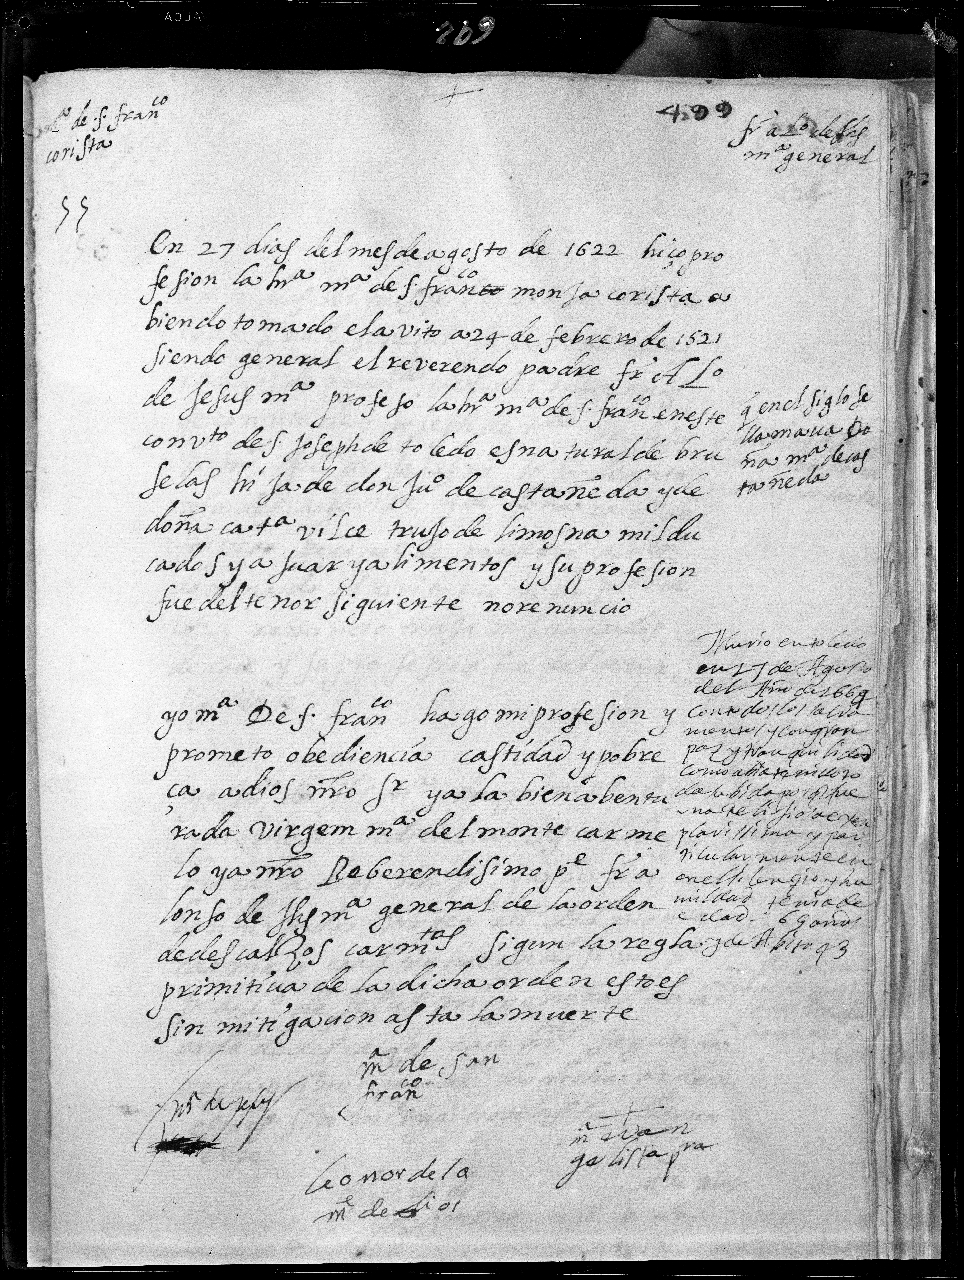 269
499
m.ª de .s. fran.co
corista
fr a.Lo de Jhs
m.ª general
55
En 27 dias del mes de agosto de 1622 hiço pro
fesion la hr.ª m.ª de s. fran.co monja corista a
biendo tomado el avito a 24 de febrero de 1521
siendo general el reverendo padre fr. A Lo
de Jesus m.ª profeso la hr.ª m.ª de s. fran.co en este
convto de s. Joseph de toledo es natural de bru
selas hija de don Juo de castañeda y de
doña cat.ª vilce trujo de limosna mil du
cados y ajuar y alimentos y su profesion
fue del tenor siguiente no renuncio
q en el siglo se
llamava Do
ña m.ª de cas
tañeda
yo m.ª De s. fran.co hago mi profesion y
prometo obediencia castidad y pobre
ça a dios nro Sr y a la bienabentu
rada virgem m.ª del monte carme
lo y a nro Reberendisimo pe fr a
lonso de Jhs m.ª general de la orden
de descalzos carmtas sigun la regla
primitiva de la dicha orden esto es
sin mitigacion asta la muerte
Murio en toledo
en 27 de Agosto
del Año de 1669
con todos los sacra
mentos y con gran
paz y tranquilidad
plarissima y par
ticularmente en
en el silencio y hu
mildad tenia de
edad 69 años
y de Abito 43
m.ª de san
fran.co
m.ª evan
gelista pra
leonor de la
m.e de dios